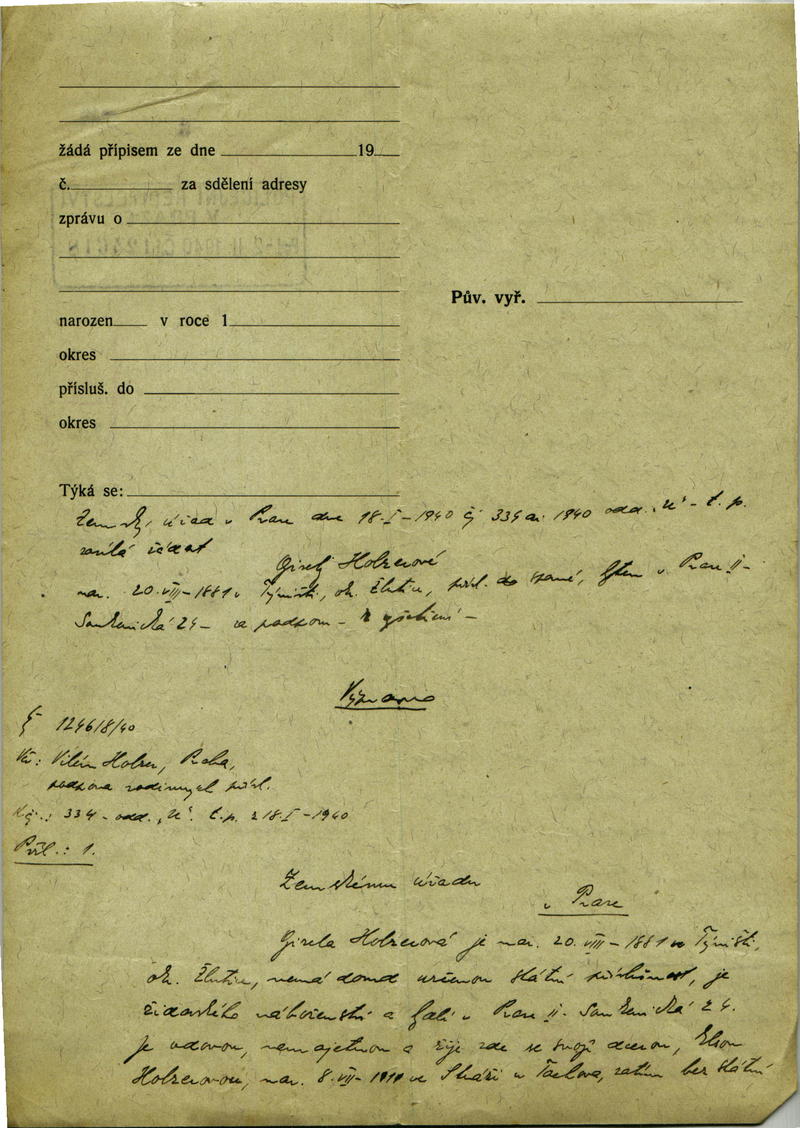 žádá přípisem ze dne 19
č. za sdělení adresy
zprávu o
Pův. vyř.
narozen v roce 1
okres
přísluš. do
okres
Týká se:
Zemský úřad v Praze dne 18-I-1940 čj 334 ai 1940 odd. "
žádost
Gisely Holzerové
nar. 20.VIII-1881 v Týništi, ok. Žlutice, přísl. do , bytem v Praze II-
Soukenická 24- o podporu -
Výprava
Čj 124618/40
Věc: Vilém Holzer, Praha,
podpora rodinných přísl.
K čj.: 334- odd. " č.p. z 18-I-1940
Příl.: 1.
Zemskému úřadu
v Praze
Gisela Holzerová je nar. 20.VIII-1881 ve Týništi,
ok. Žlutice, nemá dosud určenou státní příslušnost, je
židovského náboženství a bydlí v Praze II- Soukenická 24.
Je vdovou, nemajetnou a žije zde se svojí dcerou, Elsou
Holzerovou, nar. 8-VII-1911 ve Stráži u Tachova, zatím bez státní